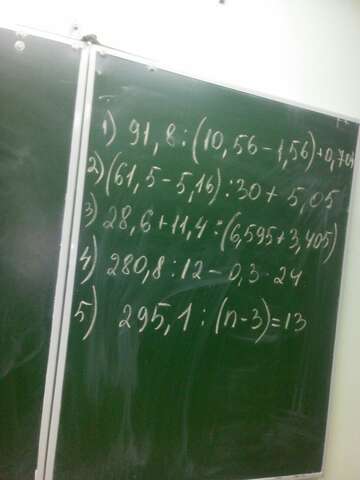 1) 91,8 : (10,56 - 1,56) + 0,704
2) (61,5 - 5,16) : 30 + 5,05
3) 28,6 + 11,4 : (6,595 + 3,405)
4) 280,8 : 12 - 0,3 · 24
5) 295,1 : (n - 3) = 13